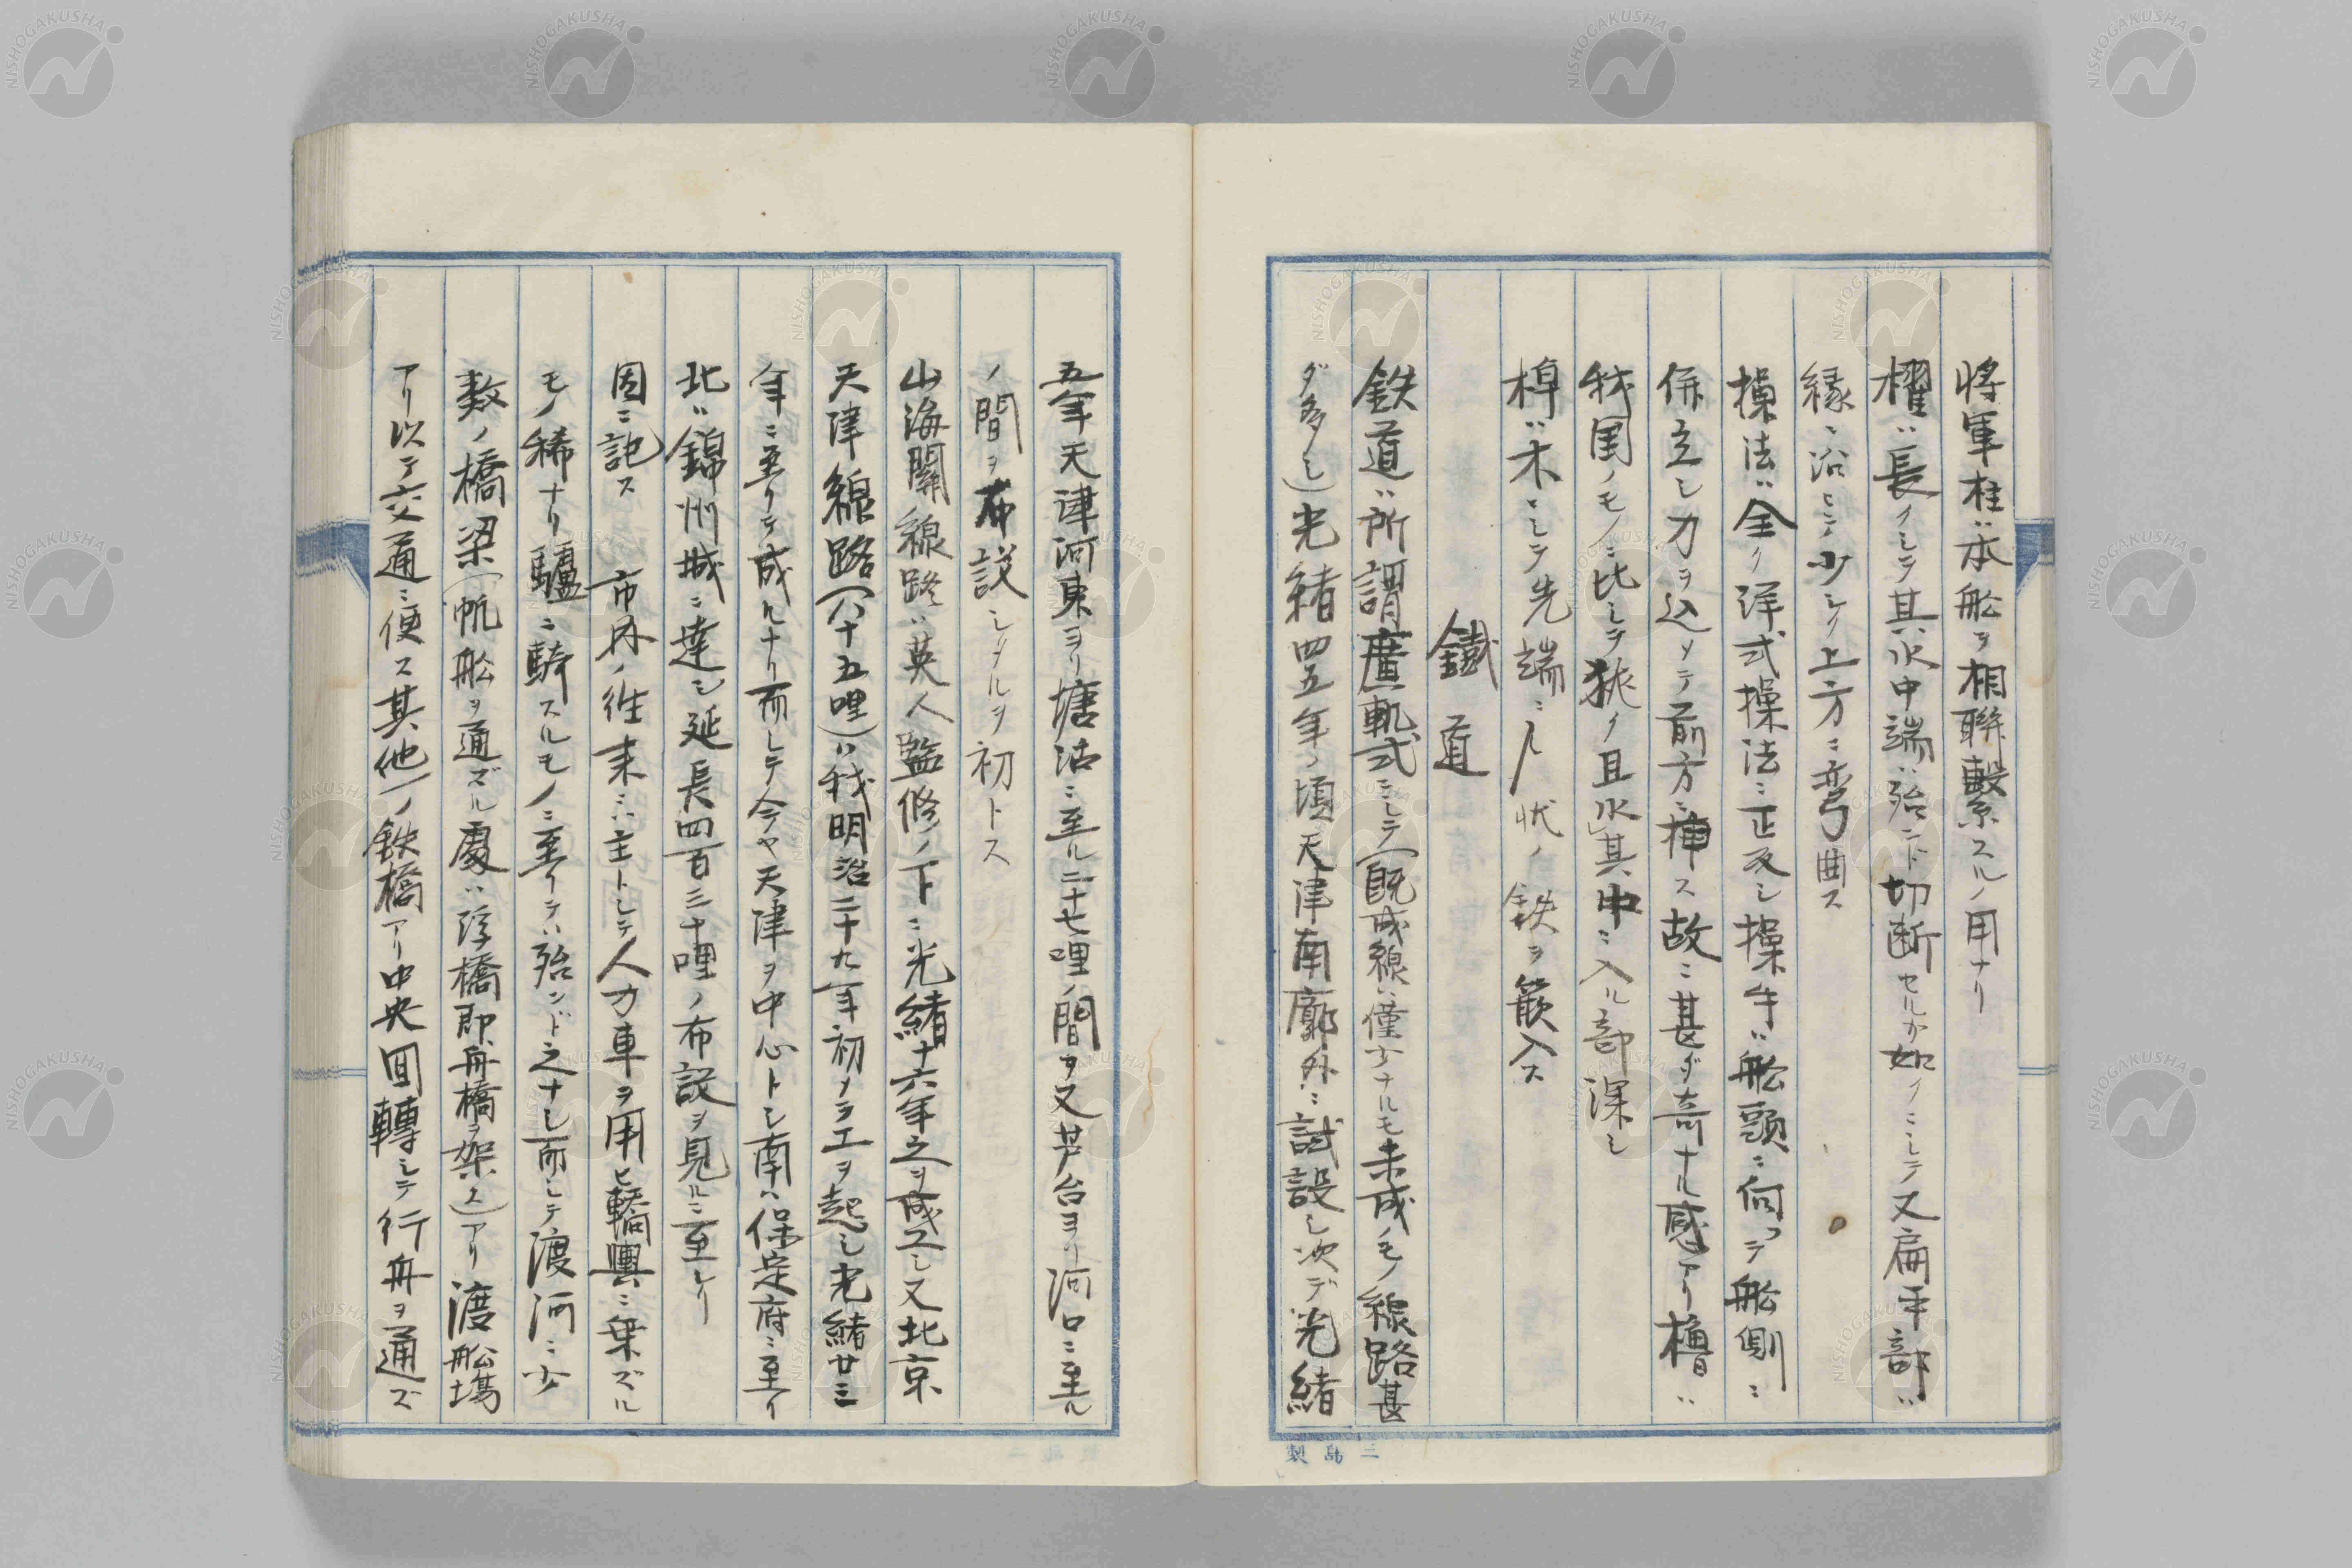 将軍柱ハ亦船ヲ相聯繋スルノ用ナリ
櫂ハ長クシテ其水中端ハ殆ンド切断セルガ如クニシテ又扁平部ハ
縁ニ沿ヒテ少シク上方ニ弯曲ス
操法ハ全ク洋式操法ニ正反シ操手ハ船頭ニ向ツテ船側ニ
併立シ力ヲ込メテ前方ニ押ス故ニ甚ダ奇ナル感アリ櫓ハ
我国ノモノニ比シテ狭ク且水其中ニ入ル部深シ
棹ハ木ニシテ先端ニ状ノ鉄ヲ篏入ス
鐵道
鉄道ハ所謂廣軌式ニシテ(既成線ハ僅少ナルモ未成ノモノ線路甚
ダ多シ)光緒四五年ノ頃天津南廓外ニ試設シ次デ光緒
五年天津河東ヨリ塘沽ニ至ル二十七哩ノ間ヲ又芦台ヨリ河口ニ至ル
ノ間ヲ布設シタルヲ初トス
山海關線路ハ英人監修ノ下ニ光緒十六年之ヲ成工シ又北京
天津線路(八十五哩)ハ我明治二十九年初メテ工ヲ起シ光緒廿三
年ニ至リテ成レルナリ而シテ今ヤ天津ヲ中心トシ南ハ保定府ニ至リ
北ハ錦州城ニ達シ延長四百三十哩ノ布設ヲ見ルニ至レリ
因ニ記ス 市内ノ往来ニハ主トシテ人力車ヲ用ヒ轎輿ニ乗ズル
モノ稀ナリ驢ニ騎スルモノニ至リテハ殆ンド之ナシ而シテ渡河ニ少
数ノ橋梁(帆船ヲ通ズル處ハ浮橋即舟橋ヲ架ス)アリ渡船場
アリ以テ交通ニ便ス其他一ノ鉄橋アリ中央回轉シテ行舟ヲ通ズ
三品製
NISHOGAKUSHA